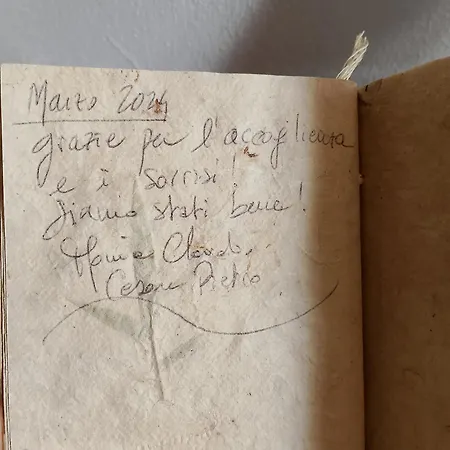 Marzo 2024
grazie per l'accoglienza
e i sorrisi!
Siamo stati bene!
Cesare Pietro